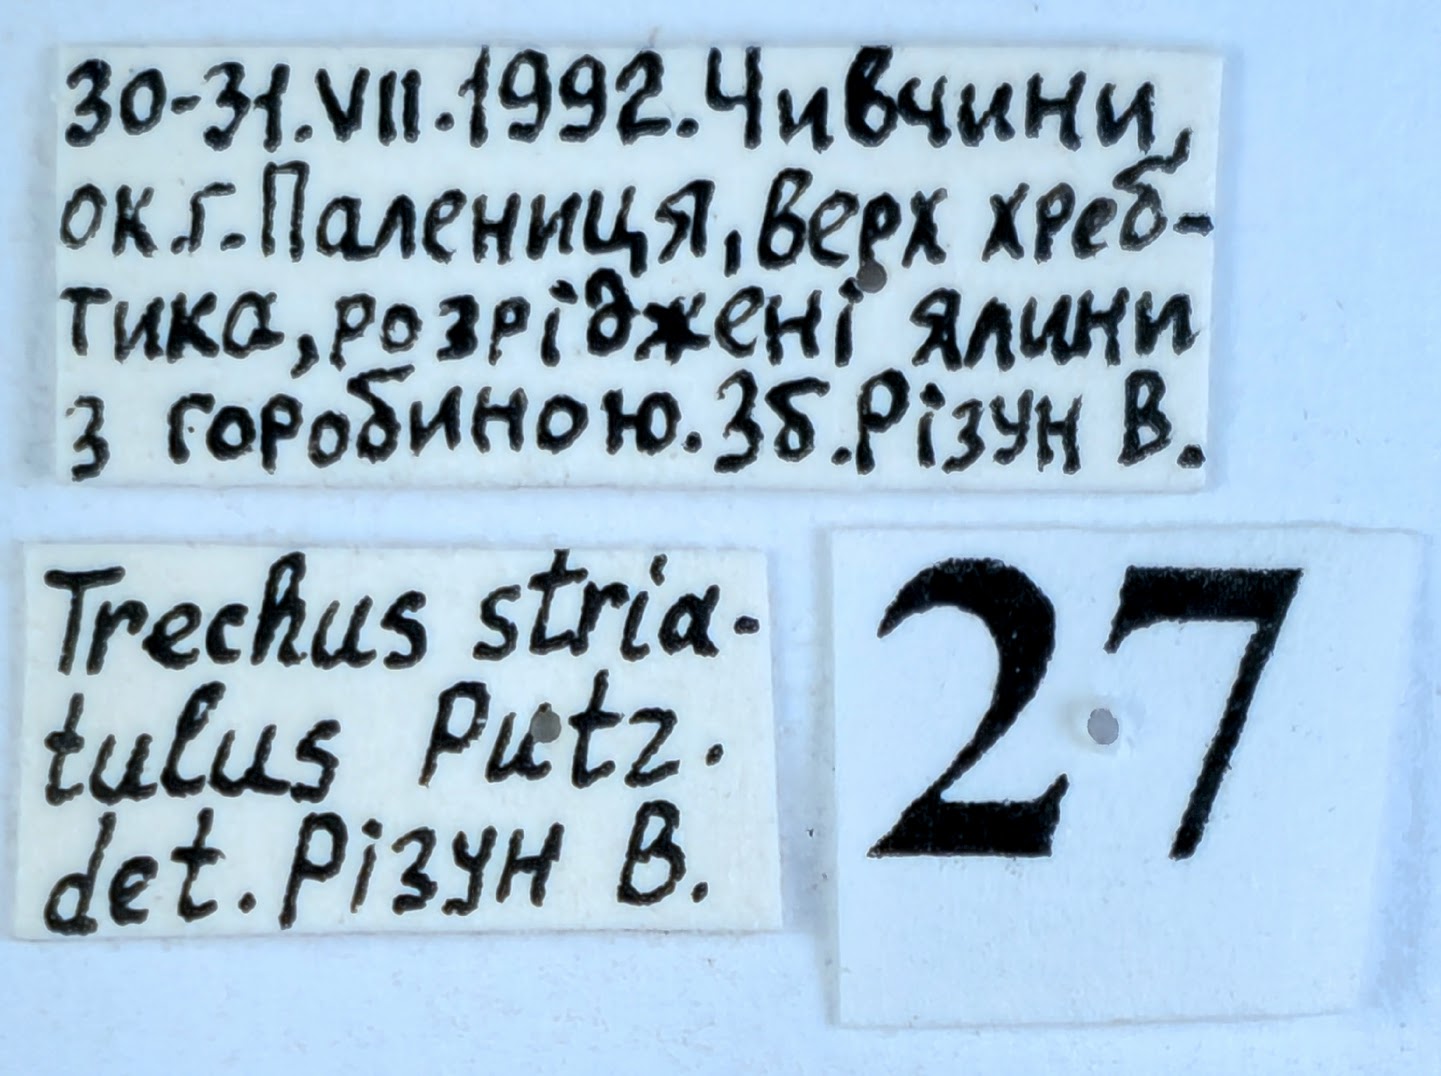 30-31.VII.1992. Чивчини,
ок.г. Палениця, верх хреб-
тика, розріджені ялини
з горобиною. Зб. Різун В.
Trechus stria-
tulus Putz.
det. Різун В.
27